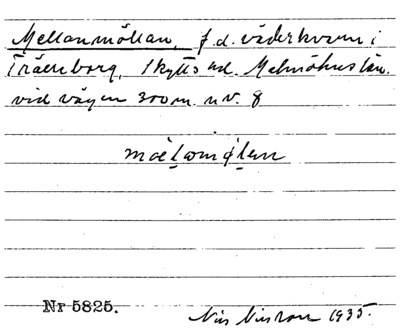 Mellanmöllan, f.d. väderkvarn i
Trälleborg, Skytts hd. Malmöhus län.
vid vägen 300 m. n.v. 8
Nr 5825.
Nils Nilsson 1935.